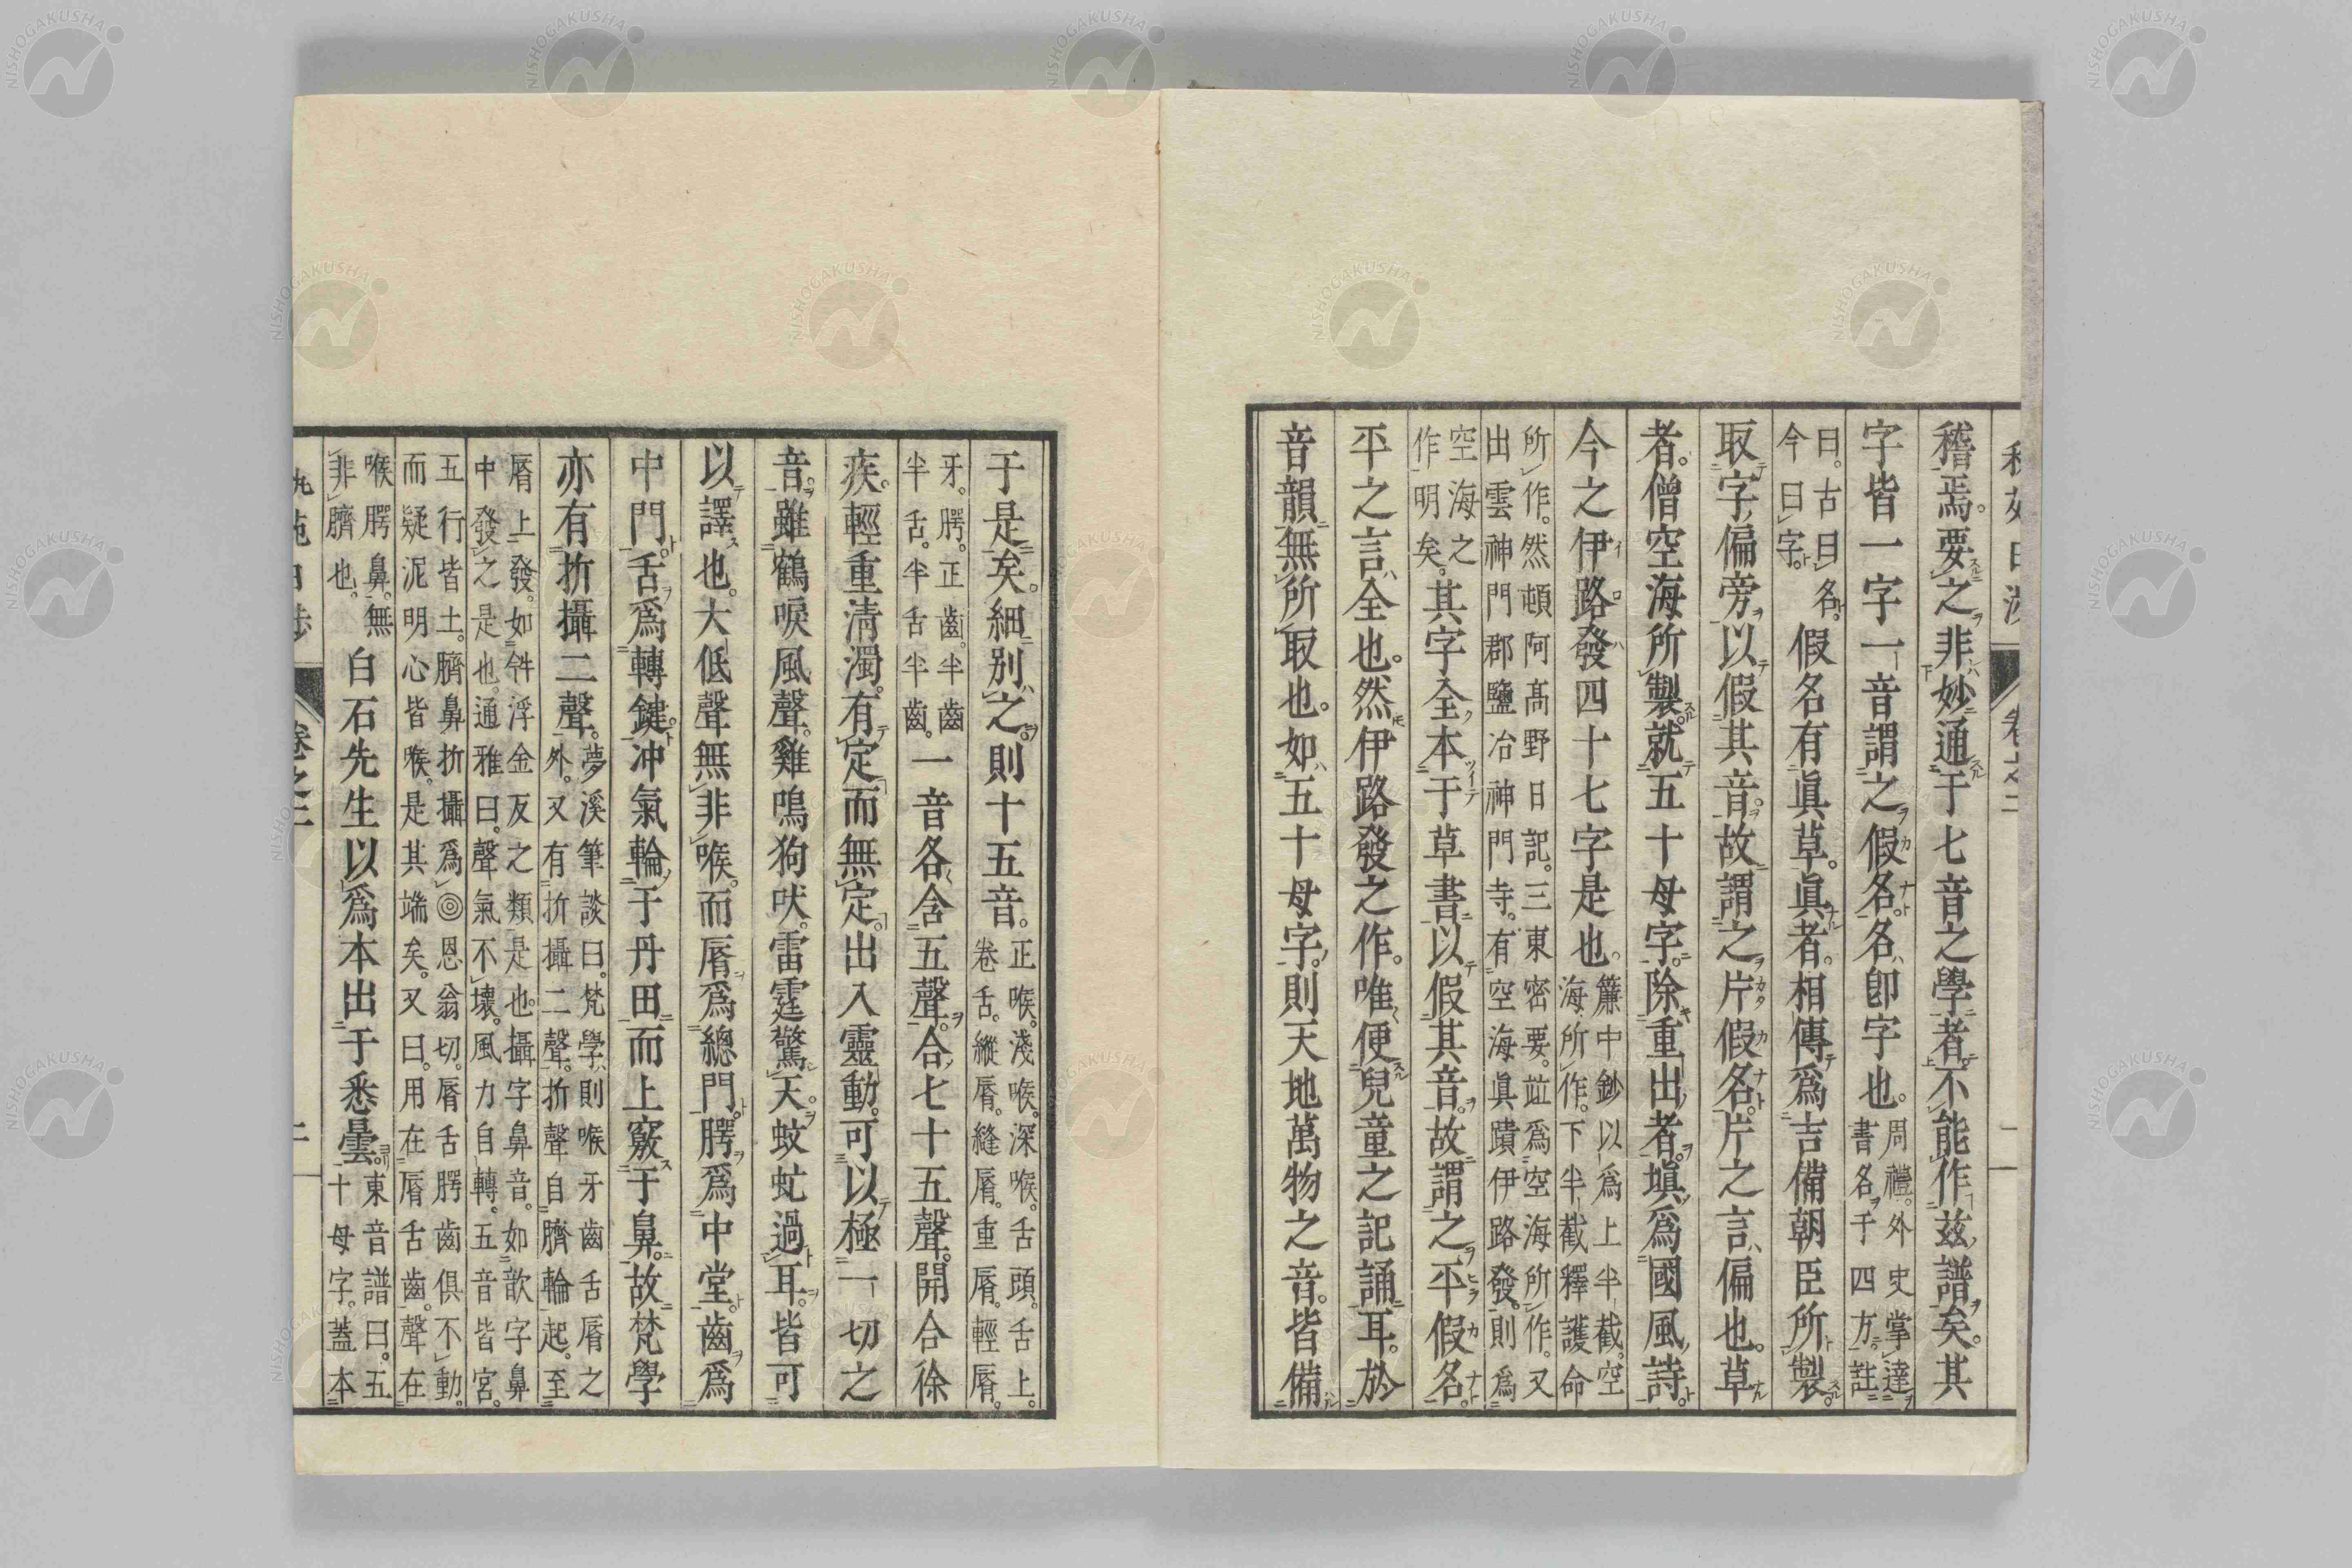 稽焉。要之非妙通于七音之學者不能作茲譜矣。其
字皆一字一音謂之假名。名卽字也。周禮。外史掌達
書名于四方。註
曰。古曰名。
今曰字。假名有眞草。眞者。相傳爲吉備朝臣所製。
取字偏旁以假其音。故謂之片假名。片之言偏也。草
者。僧空海所製。就五十母字。除重出者。塡爲國風詩。
今之伊路發四十七字是也。簾中鈔以爲上半截。空
海所作。下半截釋護命
所作。然頓阿高野日記。三東密要。竝爲空海所作。又
出雲神門郡鹽冶神門寺。有空海眞蹟伊路發。則爲
空海之
作明矣。其字全本于草書。以假其音。故謂之平假名。
平之言全也。然伊路發之作。唯便兒童之記誦耳。於
音韻無所取也。如五十母字。則天地萬物之音。皆備
于是矣。細別之。則十五音。正喉。淺喉。深喉。舌頭。舌上。
卷舌。縱脣。縫脣。重脣。輕脣。
牙。腭。正齒。半齒
半舌。半舌半齒。一音各含五聲。合七十五聲。開合徐
疾。輕重淸濁。有定而無定。出入靈動。可以極一切之
音。雖鶴唳風聲。雞鳴狗吠。雷霆驚天。蚊虻過耳。皆可
以譯也。大低聲無非喉。而脣爲總門。腭爲中堂。齒爲
中門。舌爲轉鍵。冲氣輪于丹田。而上竅于鼻。故梵學
亦有折攝二聲。夢溪筆談曰。梵學則喉牙齒舌脣之
外。又有折攝二聲。折聲自臍輪起。至
脣上發。如𤙖浮金反之類是也。攝字鼻音。如歆字鼻
中發之是也。通雅曰。聲氣不壞。風力自轉。五音皆宮。
五行皆土。臍鼻折攝爲◎恩翁切。脣舌腭齒俱不動。
而疑泥明心皆喉。是其端矣。又曰。用在脣舌齒。聲在
喉腭鼻。無
非臍也。白石先生以爲本出于悉曇。東音譜曰。五
十母字。蓋本